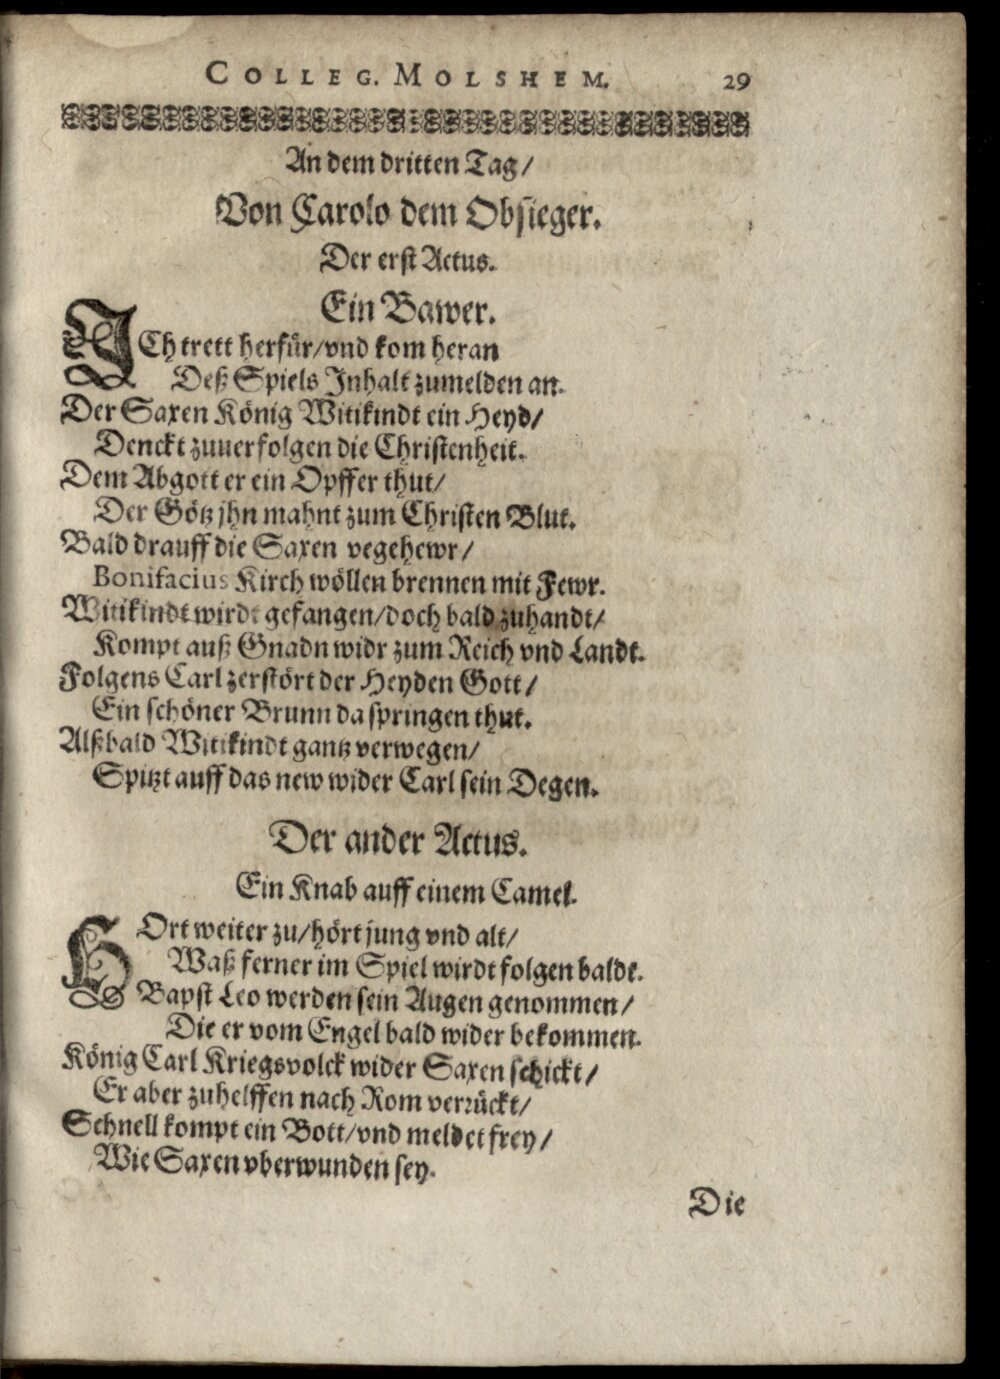 COLLEG. MOLSHEM. 29
An dem dritten Tag/
Von Carolo dem Obsieger.
Der erst Actus.
Ein Bawer.
ICh trett herfür/vnd kom heran
Deß Spiels Inhalt zumelden an.
Der Saxen König Witikindt ein Heyd/
Denckt zuuerfolgen die Christenheit.
Dem Abgott er ein Opffer thut/
Der Götz jhn mahnt zum Christen Blut.
Bald drauff die Saxen vegehewr/
Bonifacius Kirch wöllen brennen mit Fewr.
Witikindt wirdt gefangen/doch bald zuhandt/
Kompt auß Gnadn widr zum Reich vnd Landt.
Folgens Carl zerstört der Heyden Gott/
Ein schöner Brunn da springen thut.
Alßbald Witikindt gantz verwegen/
Spitzt auff das new wider Carl sein Degen.
Der ander Actus.
Ein Knab auff einem Camel.
HOrt weiter zu/hört jung vnd alt/
Waß ferner im Spiel wirdt folgen baldt.
Bapst Leo werden sein Augen genommen/
Die er vom Engel bald wider bekommen.
König Carl Kriegsvolck wider Saxen schickt/
Er aber zuhelffen nach Rom verrückt/
Schnell kompt ein Bott/vnd meldet frey/
Wie Saxen vberwunden sey.
Die